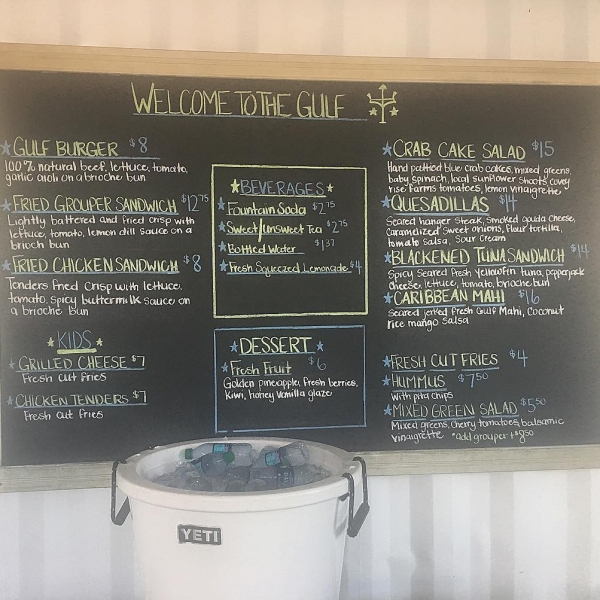 WELCOME TO THE GULF
GULF BURGER $8
100% natural beef, lettuce, tomato,
garlic aioli on a brioche bun
FRIED GROUPER SANDWICH $12.75
Lightly battered and fried crisp with
lettuce, tomato, lemon dill sauce on a
brioch bun
FRIED CHICKEN SANDWICH $8
Tenders fried crisp with lettuce,
tomato, spicy buttermilk sauce on
a brioche bun
KIDS
GRILLED CHEESE $7
Fresh cut fries
CHICKEN TENDERS $7
Fresh cut fries
BEVERAGES
Fountain Soda $2.75
Sweet/unsweet Tea $2.75
Bottled Water $1.37
Fresh Squeezed Lemonade $4
DESSERT
Fresh Fruit $6
Golden pineapple, fresh berries,
kiwi, honey vanilla glaze
CRAB CAKE SALAD $15
Hand patted blue crab cakes, mixed greens,
baby spinach, local sunflower shoots, covey
rise farms tomatoes, lemon vinaigrette
QUESADILLAS $14
Seared hanger steak, smoked gouda cheese,
caramelized sweet onions, flour tortilla,
tomato salsa, sour cream
BLACKENED TUNA SANDWICH $14
Spicy seared fresh yellowfin tuna, pepperjack
cheese, lettuce, tomato, brioche bun
CARIBBEAN MAHI $16
Seared jerked fresh Gulf Mahi, coconut
rice mango salsa
FRESH CUT FRIES $4
HUMMUS $7.50
with pita chips
MIXED GREEN SALAD $5.50
Mixed greens, cherry tomatoes, balsamic
vinaigrette *add grouper +$8.50
YETI